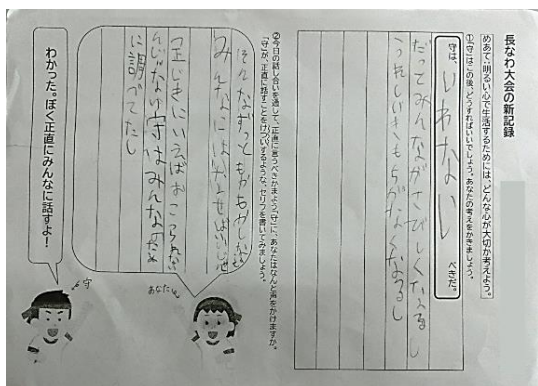 長なわ大会の新記録
めあて：明るい心で生活するためには、どんな心が大切か考えよう。
①「守」はこの後、どうすればいいでしょう。あなたの考えをかきましょう。
守は、いわない べきだ。
だってみんながさびしくなるし
うれしいきもちがなくなるし
②今日の話し合いを通して、正直に言うべきかまよう「守」に、あなたはなんと声をかけますか。
「守」が、正直に話すことをけついするような、セリフを書いてみましょう。
そんなずっともやもやしない
みんなにはなせばいいじ
正じきにいえばおこられない
んじゃない守はみんなのため
に調べてたし
あなた
守
わかった。ぼく正直にみんなに話すよ！